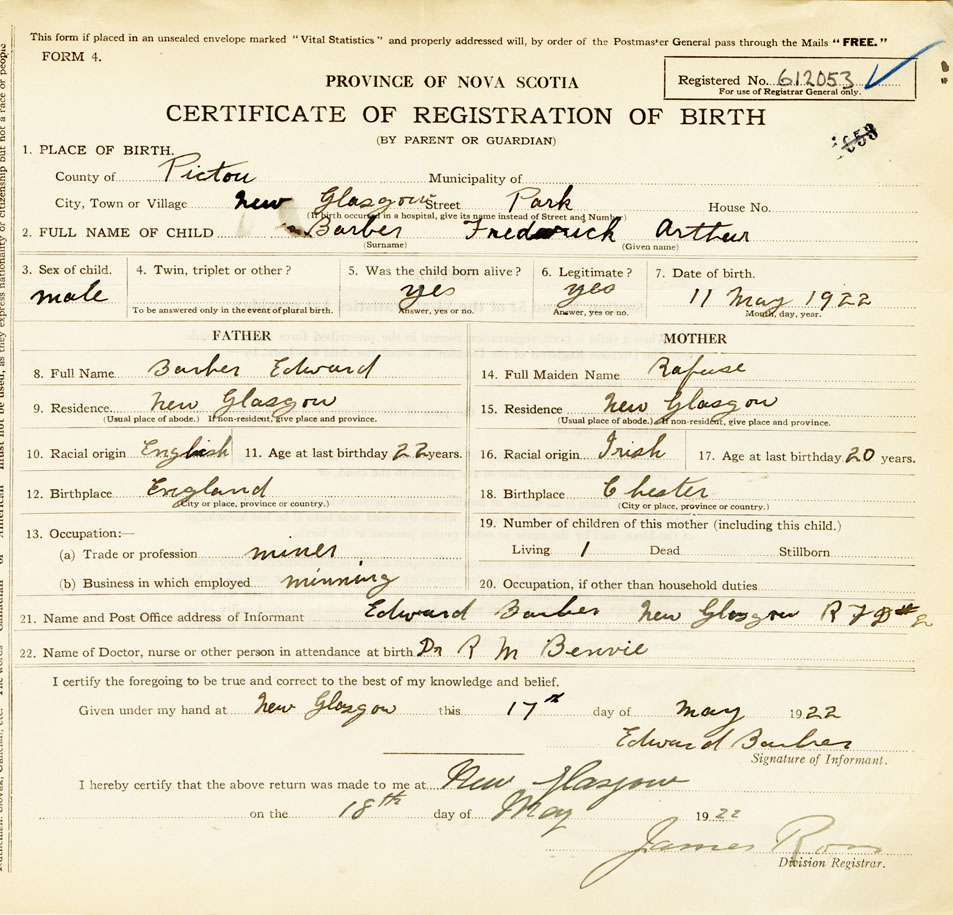 This form if placed in an unsealed envelope marked "Vital Statistics" and properly addressed will, by order of the Postmaster General pass through the Mails "FREE."
FORM 4.
Registered No. 612053
For use of Registrar General only.
PROVINCE OF NOVA SCOTIA
CERTIFICATE OF REGISTRATION OF BIRTH
(BY PARENT OR GUARDIAN)
1. PLACE OF BIRTH.
County of Pictou Municipality of
City, Town or Village New Glasgow Street Park House No.
(If birth occurred in a hospital, give its name instead of Street and Number)
2. FULL NAME OF CHILD Barber Frederick Arthur
(Surname) (Given name)
3. Sex of child. 4. Twin, triplet or other? 5. Was the child born alive? 6. Legitimate? 7. Date of birth.
male yes yes 11 May 1922
To be answered only in the event of plural birth. Answer, yes or no. Answer, yes or no. Month, day, year.
FATHER MOTHER
8. Full Name Barber Edward 14. Full Maiden Name Rafuse
9. Residence New Glasgow 15. Residence New Glasgow
(Usual place of abode.) If non-resident, give place and province. (Usual place of abode.) If non-resident, give place and province.
10. Racial origin English 11. Age at last birthday 22 years. 16. Racial origin Irish 17. Age at last birthday 20 years.
12. Birthplace England 18. Birthplace Chester
(City or place, province or country.) (City or place, province or country.)
13. Occupation:— 19. Number of children of this mother (including this child.)
(a) Trade or profession miner Living 1 Dead Stillborn
(b) Business in which employed minning 20. Occupation, if other than household duties
21. Name and Post Office address of Informant Edward Barber New Glasgow R F D # 2
22. Name of Doctor, nurse or other person in attendance at birth Dr R M Benvie
I certify the foregoing to be true and correct to the best of my knowledge and belief.
Given under my hand at New Glasgow this 17th day of May 1922
Edward Barber
Signature of Informant.
I hereby certify that the above return was made to me at New Glasgow
on the 18th day of May 1922
James Ross
Division Registrar.